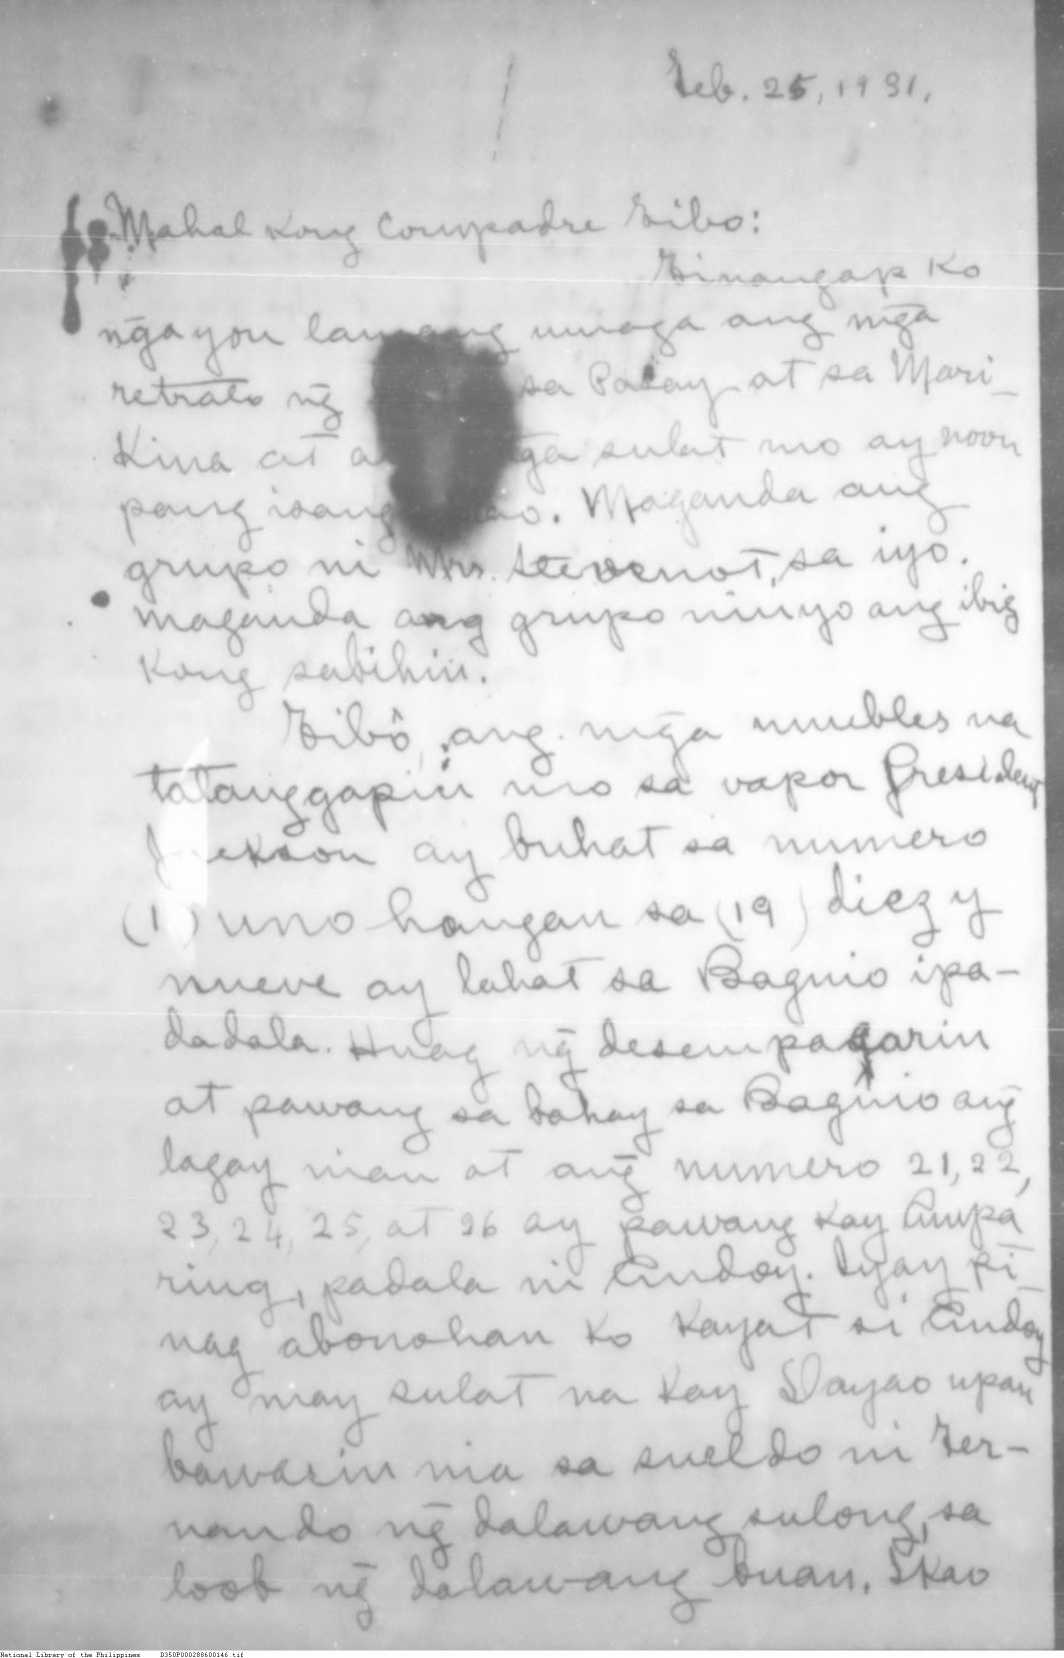 Feb. 25, 1931.
Mahal Kong Compadre Tibo:
Tinangap Ko
ngayon lamang umaga ang mg̃a
retrato ng̃ sa Pasay at sa Mari-
Kina at sulat mo ay noon
pang isang. Maganda ang
grupo ni Mrs. Stevenot, sa iyo.
maganda ang grupo ninyo ang ibig
Kong sabihin.
Tibô, ang mg̃a muebles na
tatanggapin mo sa vapor President
Jackson ay buhat sa numero
(1) uno hangan sa (19) diez y
nueve ay lahat sa Baguio ipa-
dadala. Huag ng̃ desempaqarin
at pawang sa bahay sa Baguio ang̃
lagay nian at ang̃ numero 21, 22,
23, 24, 25, at 26 ay pawang Kay Ampa
ring, padala ni Andoy. Iyay pi-
nag abonohan Ko Kayat si Andoy
ay may sulat na Kay Dayao upan
bawasin nia sa sueldo ni Fer-
nando ng̃ dalawang sulong, sa
loob ng̃ dalawang buan. Ikao
National Library of the Philippines D350P000288600146.tif